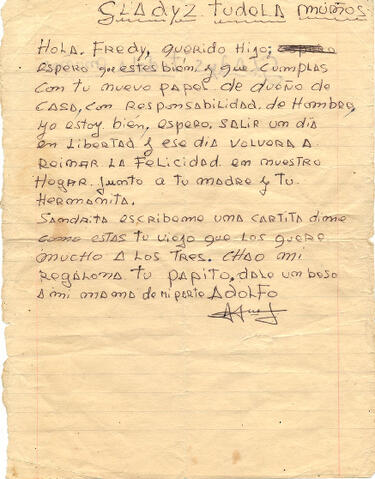 GLADYZ TUDELA MUÑOS
HOLA. FREDY, QUERIDO HIJO;
ESPERO QUE ESTES BIEN y QUE CUMPLAS
CON TU NUEVO PAPEL DE DUEÑO DE
CASA, CON RESPONSABILIDAD, DE HOMBRE,
yo ESTOY BIEN, ESPERO SALIR UN DIA
EN LIBERTAD y ESE DIA VOLVERA A
REINAR LA FELICIDAD EN NUESTRO
HOGAR JUNTO A TU MADRE y TU
HERMANITA.
SANDRITA ESCRIBEME UNA CARTITA DIME
COMO ESTAS TU VIEJO QUE LOS QUERE
MUCHO A LOS TRES. CHAO MI
REGALONA TU PAPITO, DALE UN BESO
A MI MAMA DE MI PARTE ADOLFO